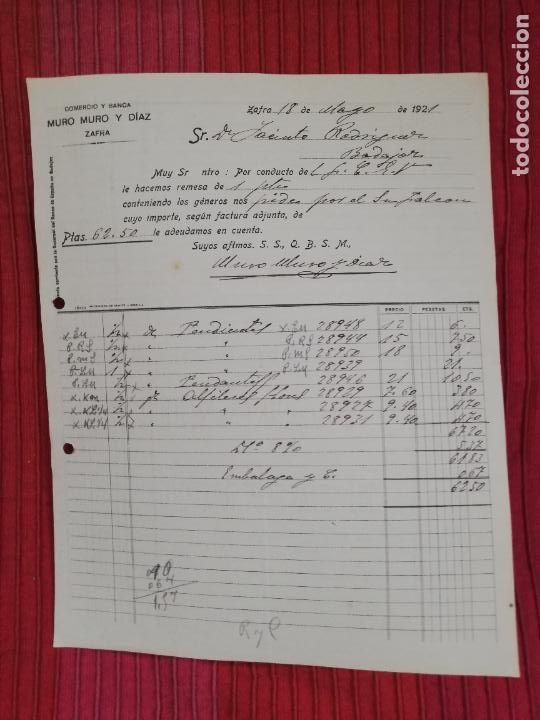 COMERCIO Y BANCA
MURO MURO Y DÍAZ
ZAFRA
Zafra 18 de Mayo de 1921
Sr. Dn Jacinto Rodriguez
Badajoz
Muy Sr ntro: Por conducto de
le hacemos remesa de 1 pqte
conteniendo los géneros nos pedidos por el Sr
cuyo importe, según factura adjunta, de
Ptas. 62.50 le adeudamos en cuenta.
Suyos aftmos. S. S., Q. B. S. M.,
Muro Muro y Diaz
PRECIO PESETAS CTS.
1/2 Pendientes 28948 12 6.
1/2 " " 28944 15 7.50
1/2 " " 28950 18 9.
1 " " 28939 21.
1/2 " 28946 21 10.50
1/2 Alfileres 28929 7.60 3.80
1/2 " " 28927 9.40 4.70
1/2 " " 28931 9.40 4.70
67 20
8% 5.37
61.83
Embalage y C. 0.67
62.50
90
067
1.57
R y C
todocoleccion.net